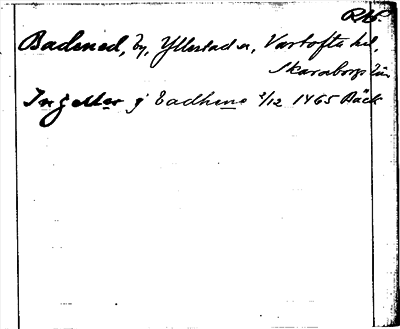 Rkb.
Badened, by, Yllestad sn, Vartofta hd,
Skaraborgs län
Ingeller j Badhene 2/12 1465 Bäck